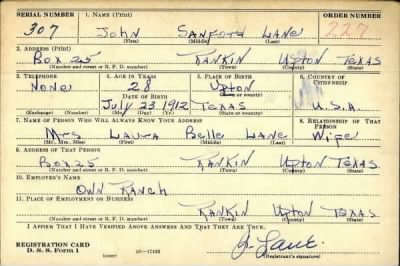 SERIAL NUMBER 1. NAME (Print) ORDER NUMBER
307 John Sanford Lane 227
(First) (Middle) (Last)
2. ADDRESS (Print)
Box 25 Rankin Upton Texas
(Number and street or R. F. D. number) (Town) (County) (State)
3. TELEPHONE 4. AGE IN YEARS 5. PLACE OF BIRTH 6. COUNTRY OF CITIZENSHIP
None 28 Upton
DATE OF BIRTH (Town or county)
July 23 1912 Texas U.S.A.
(Exchange) (Number) (Mo.) (Day) (Yr.) (State or country)
7. NAME OF PERSON WHO WILL ALWAYS KNOW YOUR ADDRESS 8. RELATIONSHIP OF THAT PERSON
Mrs Laura Belle Lane Wife
(Mr., Mrs., Miss) (First) (Middle) (Last)
9. ADDRESS OF THAT PERSON
Box 25 Rankin Upton Texas
(Number and street or R. F. D. number) (Town) (County) (State)
10. EMPLOYER'S NAME
Own Ranch
11. PLACE OF EMPLOYMENT OR BUSINESS
Rankin Upton Texas
(Number and street or R. F. D. number) (Town) (County) (State)
I AFFIRM THAT I HAVE VERIFIED ABOVE ANSWERS AND THAT THEY ARE TRUE.
REGISTRATION CARD
D. S. S. Form 1 (over) Lane
(Registrant's signature)